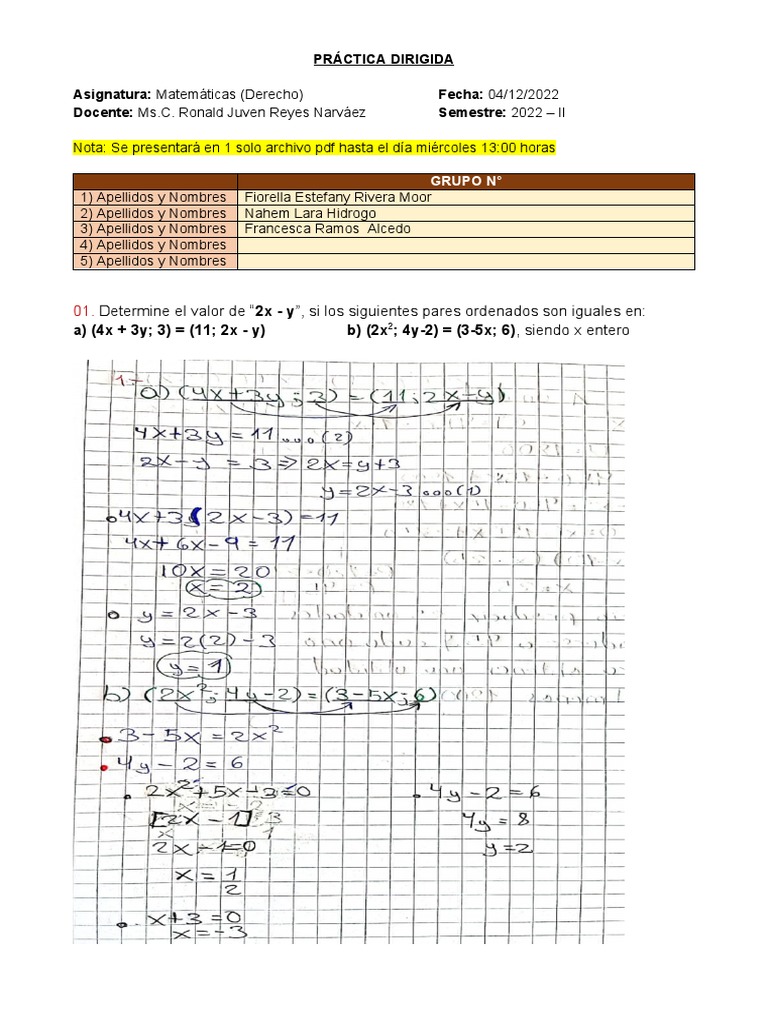 PRÁCTICA DIRIGIDA
Asignatura: Matemáticas (Derecho) Fecha: 04/12/2022
Docente: Ms.C. Ronald Juven Reyes Narváez Semestre: 2022 – II
Nota: Se presentará en 1 solo archivo pdf hasta el día miércoles 13:00 horas
GRUPO N°
1) Apellidos y Nombres Fiorella Estefany Rivera Moor
2) Apellidos y Nombres Nahem Lara Hidrogo
3) Apellidos y Nombres Francesca Ramos Alcedo
4) Apellidos y Nombres
5) Apellidos y Nombres
01. Determine el valor de “2x - y”, si los siguientes pares ordenados son iguales en:
a) (4x + 3y; 3) = (11; 2x - y) b) (2x²; 4y-2) = (3-5x; 6), siendo x entero
1-
a) (4x+3y; 3) = (11; 2x-y)
4x+3y = 11 ...(2)
2x-y = 3 ⇒ 2x=y+3
y=2x-3 ...(1)
• 4x+3(2x-3)=11
4x+6x-9=11
10x=20
x=2
• y=2x-3
y=2(2)-3
y=1
b) (2x²; 4y-2)=(3-5x; 6)
• 3-5x=2x²
• 4y-2=6
• 2x²+5x-3=0 • 4y-2=6
[2x-1] 3 4y=8
x 1
2x-1=0 y=2
x=1/2
• x+3=0
x=-3